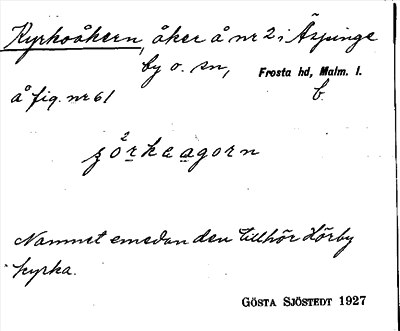 Kyrkoåkern, åker å nr 2 i Äspinge
by o. sn, Frosta hd, Malm. l.
å fig. nr 61 b.
Namnet emedan den tillhör Hörby
kyrka.
GÖSTA SJÖSTEDT 1927